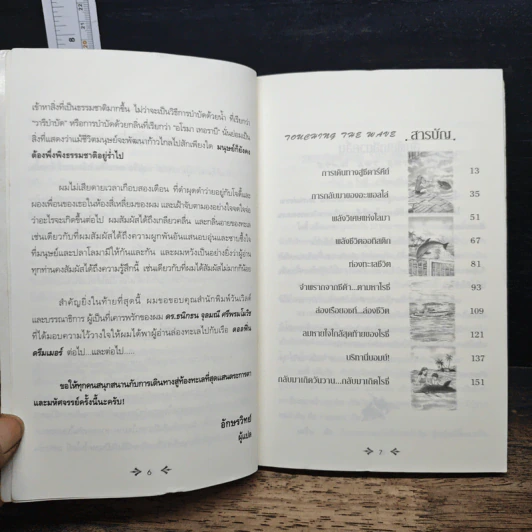 เข้าหาสิ่งที่เป็นธรรมชาติมากขึ้น ไม่ว่าจะเป็นวิธีการบำบัดด้วยน้ำ ที่เรียกว่า
"วารีบำบัด" หรือการบำบัดด้วยกลิ่นที่เรียกว่า "อโรมา เทอราปี" นั่นย่อมเป็น
สิ่งที่แสดงว่าแม้ชีวิตมนุษย์จะพัฒนาก้าวไกลไปสักเพียงใด มนุษย์ก็ยังคง
ต้องพึ่งพิงธรรมชาติอยู่ร่ำไป
ผมไม่เสียดายเวลาเกือบสองเดือน ที่ดำผุดดำว่ายอยู่กับโจดี้และ
ผองเพื่อนของเธอในท้องสี่เหลี่ยมของผม และเฝ้าจับตามองอย่างใจจดใจจ่อ
ว่าอะไรจะเกิดขึ้นต่อไป ผมสัมผัสได้ถึงเกลียวคลื่น และกลิ่นอายของทะเล
เช่นเดียวกับที่ผมสัมผัสได้ถึงความผูกพันอันแสนอบอุ่นและซาบซึ้งใจ
ที่มนุษย์และปลาโลมามีให้กันและกัน และผมหวังเป็นอย่างยิ่งว่าผู้อ่าน
ทุกท่านคงสัมผัสได้ถึงความรู้สึกนี้ เช่นเดียวกับที่ผมสัมผัสได้ไม่มากก็น้อย
สำคัญยิ่งในท้ายที่สุดนี้ ผมขอขอบคุณสำนักพิมพ์วันเวิลด์
และบรรณาธิการ ผู้เป็นที่เคารพรักของผม ดร.ธนิกธน จุดมณี ศรีพรมโมวิช
ที่ได้มอบความไว้วางใจให้ผมได้พาผู้อ่านล่องทะเลไปกับเรือ ดอลฟิน
ดรีมเมอร์ ต่อไป...และต่อไป.....
ขอให้ทุกคนสนุกสนานกับการเดินทางสู่ท้องทะเลที่สุดแสนตระการตา
และมหัศจรรย์ครั้งนี้นะครับ!
อักษรวิทย์
ผู้แปล
6
TOUCHING THE WAVE สารบัญ
การเดินทางสู่ซีดาร์คีย์ 13
การกลับมาของอะพอลโล่ 35
พลังวิเศษแห่งโลมา 51
พลังชีวิตออทิสติก 67
ท่องทะเลชีวิต 81
จำพรากจากซีด้า...ตามหาโรซี่ 93
ล่องเรือยอชท์...ล่องชีวิต 109
ลมหายใจใกล้สุดท้ายของโรซี่ 121
บริทานี่มอบน์! 137
กลับมาเถิดวันวาน...กลับมาเถิดโรซี่ 151
7